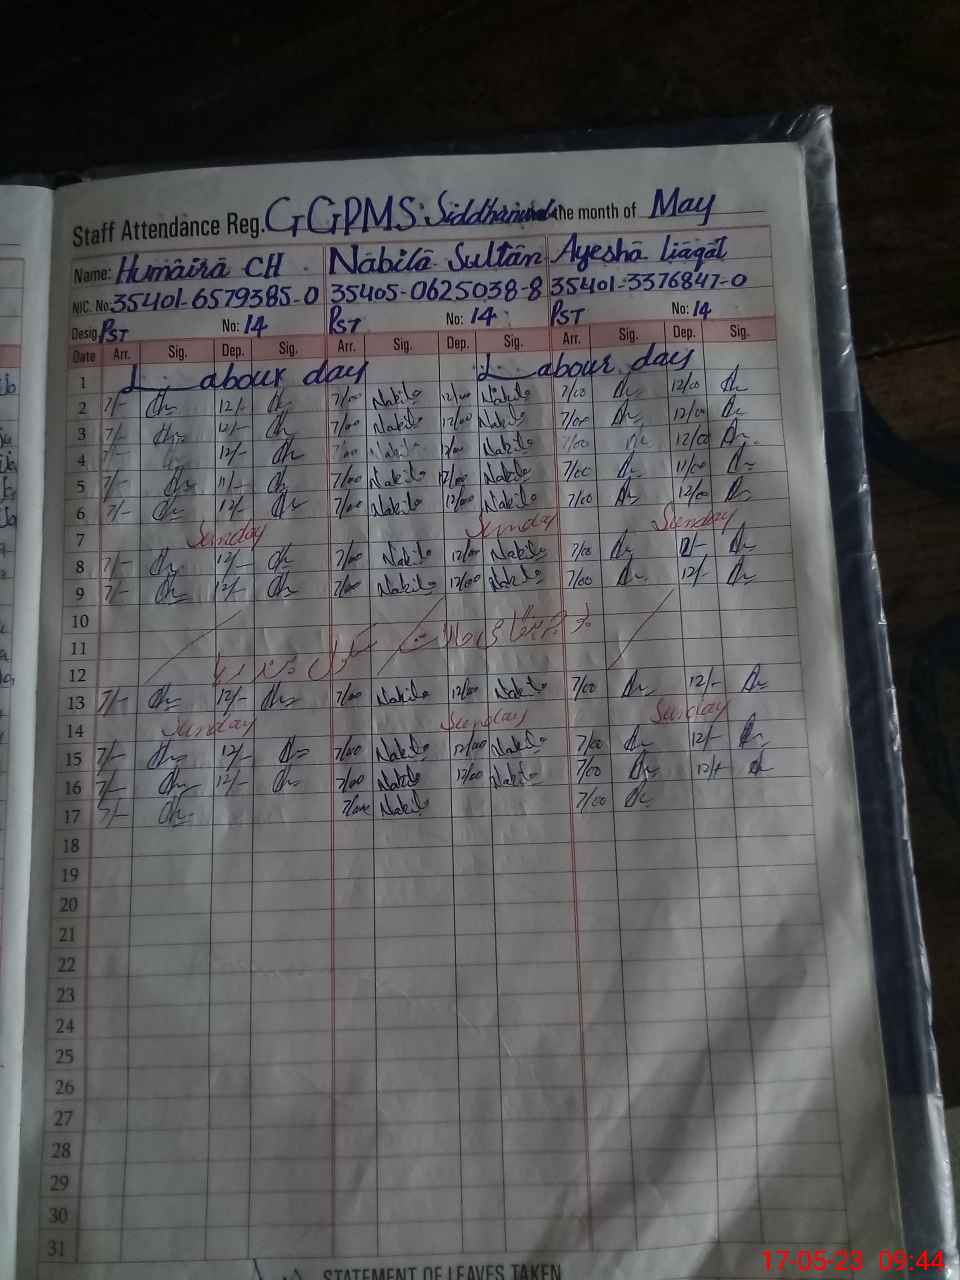 Staff Attendance Reg. GGPMS: the month of May
Name: Humaira CH Nabila Sultan Ayesha Liaqat
NIC. No: 35401-6579385-0 35405-0625038-8 35401-3376847-0
Desig PST No: 14 PST No: 14 PST No: 14
Date Arr. Sig. Dep. Sig. Arr. Sig. Dep. Sig. Arr. Sig. Dep. Sig.
1 Labour day Labour day
2 7/- 12/- 7/00 Nabila 12/00 Nabila 7/00 12/00
3 7/- 12/- 7/00 Nabila 12/00 Nabila 7/00 12/00
4 7/- 12/- 7/00 Nabila 12/00 Nabila 7/00 12/00
5 7/- 11/- 7/00 Nabila 12/00 Nabila 7/00 11/00
6 7/- 12/- 7/00 Nabila 12/00 Nabila 7/00 12/00
7 Sunday Sunday Sunday
8 7/- 12/- 7/00 Nabila 12/00 Nabila 7/00 12/-
9 7/- 12/- 7/00 Nabila 12/00 Nabila 7/00 12/-
10
11
12
13 7/- 12/- 7/00 Nabila 12/00 Nabila 7/00 12/-
14 Sunday Sunday Sunday
15 7/- 12/- 7/00 Nabila 12/00 Nabila 7/00 12/-
16 7/- 12/- 7/00 Nabila 12/00 Nabila 7/00 12/-
17 7/- 7/00 Nabila 7/00
18
19
20
21
22
23
24
25
26
27
28
29
30
31
STATEMENT OF LEAVES TAKEN
17-05-23 09:44